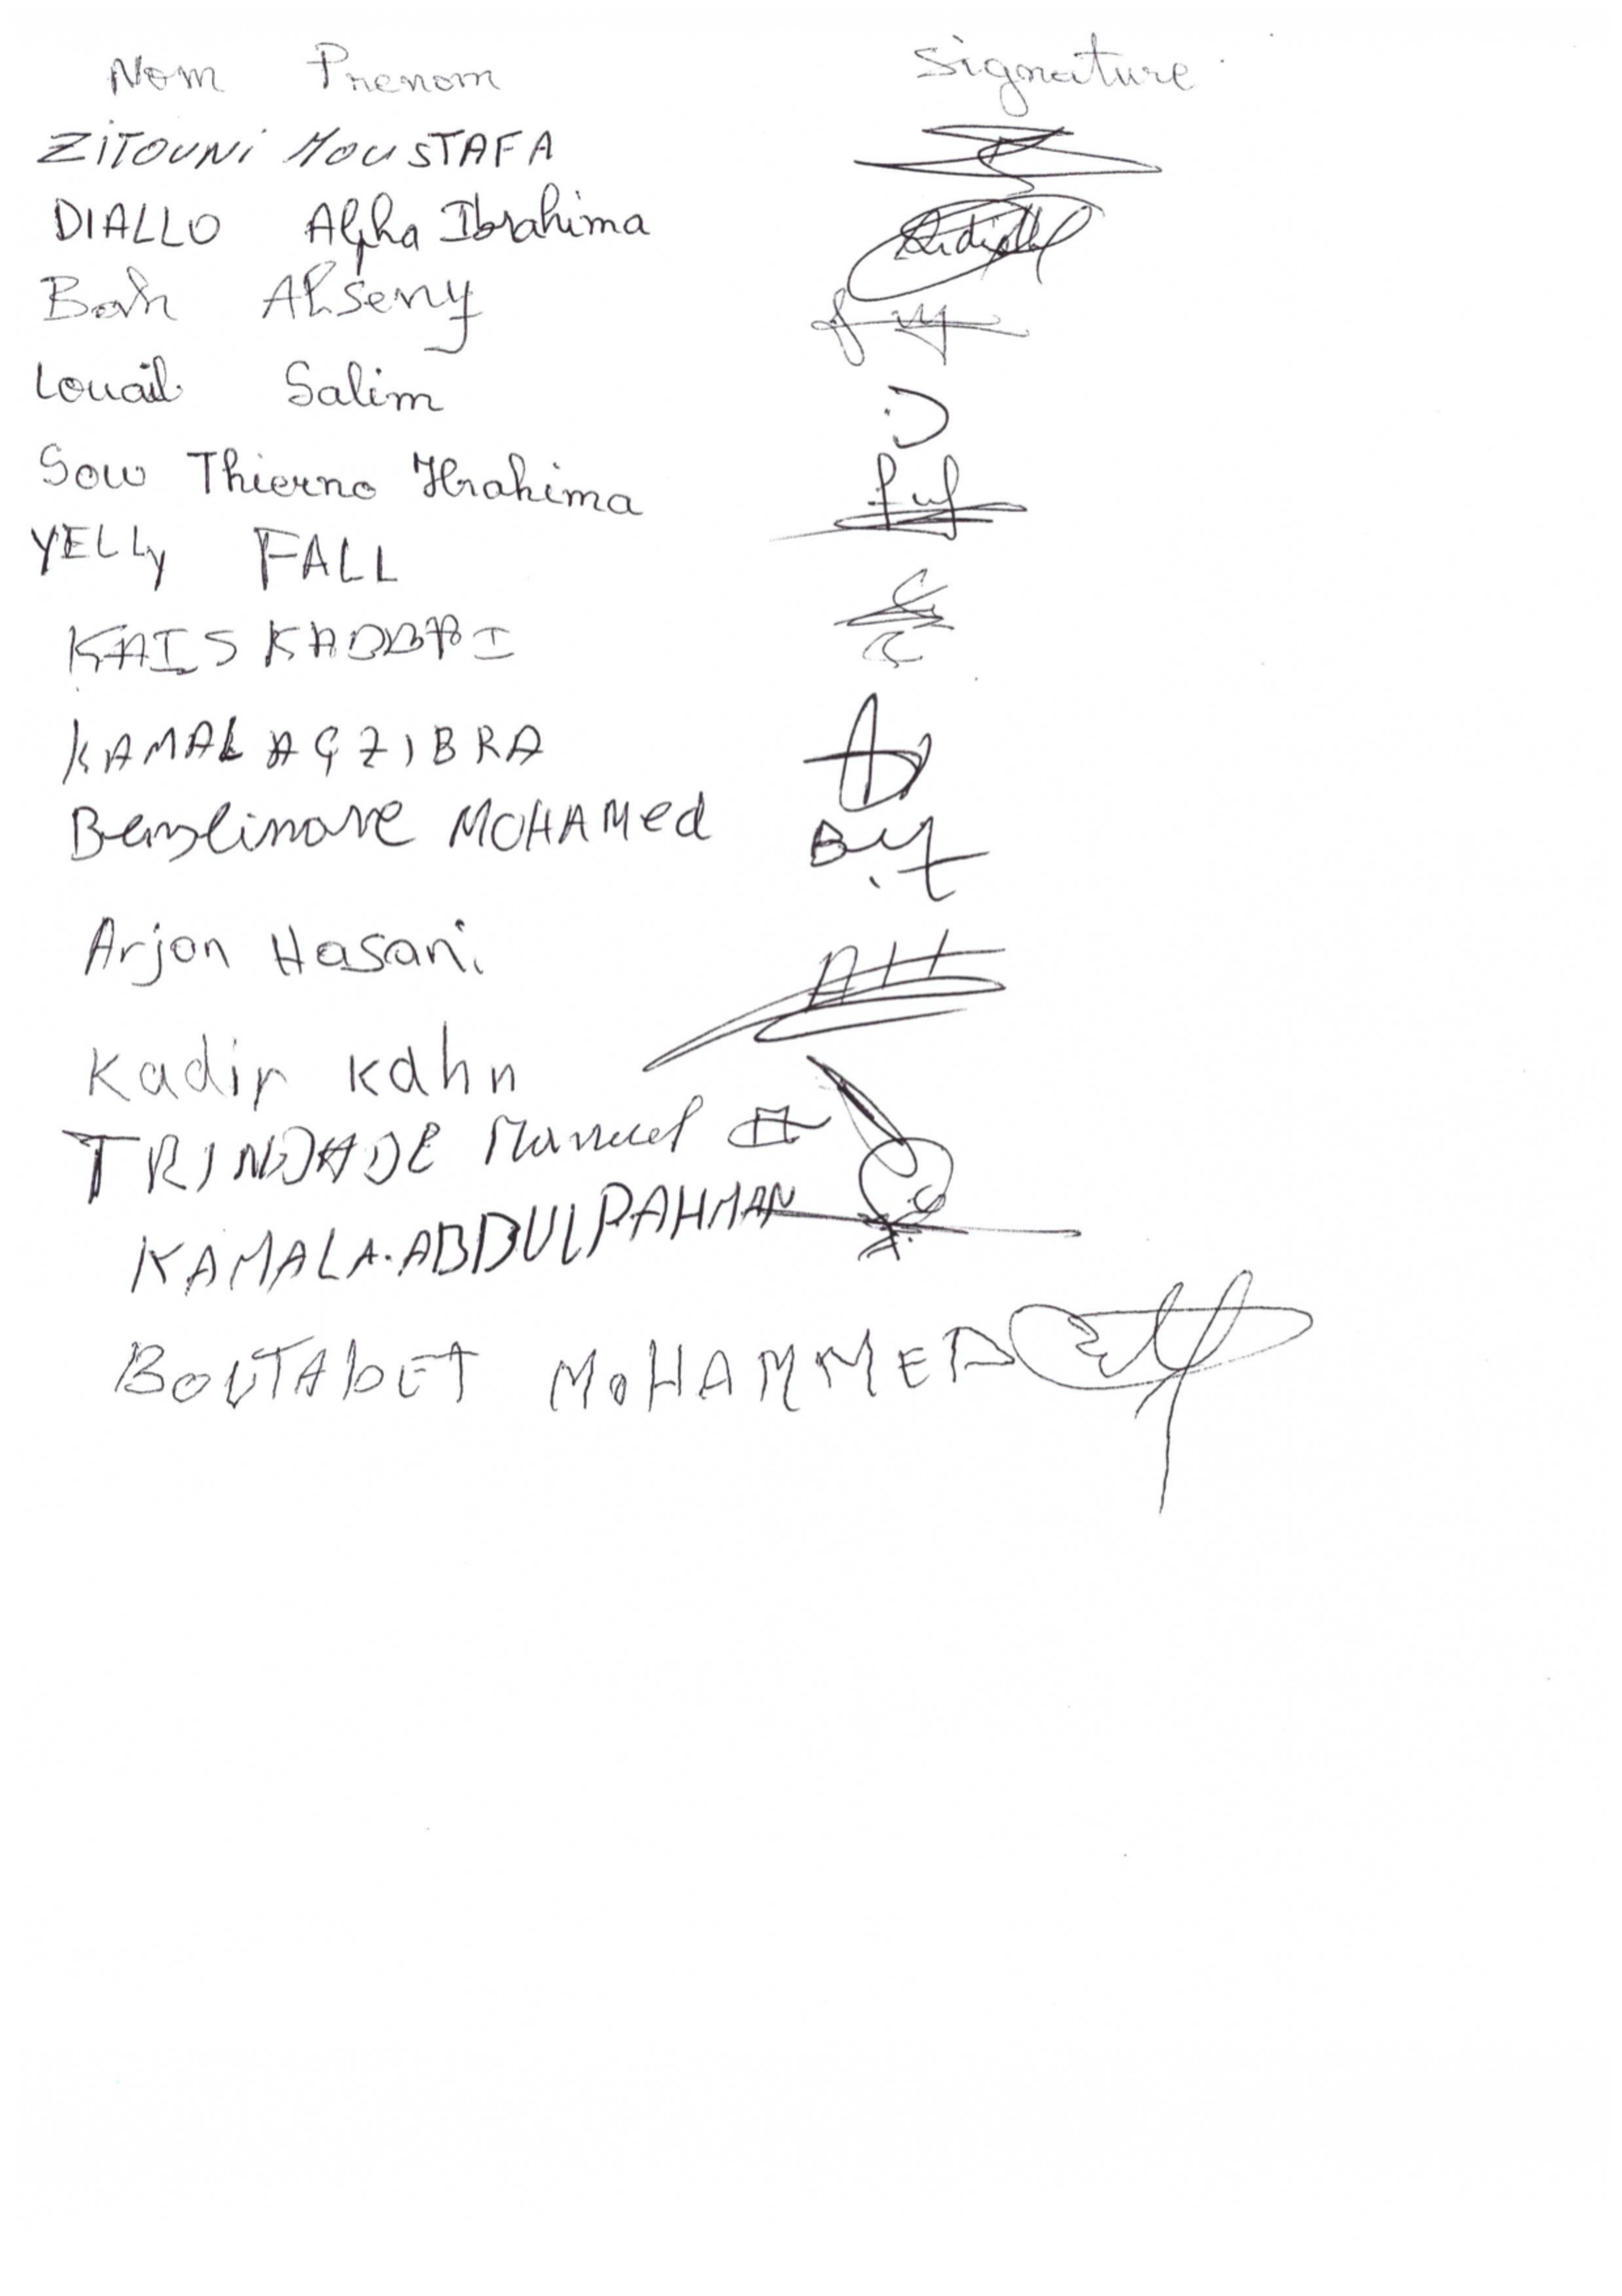 Nom Prenom Signature
ZiTOUNi MOUSTAFA
DIALLO Alpha Ibrahima
Bah Alseny
Louail Salim
Sow Thierno Ibrahima
YELLy FALL
KAIS
KAMAL
MOHAMed
Arjon Hasani
Kadir Kahn
TRINDADE Manuel
KAMAL A. ABDULRAHMAN
BOUTABET MOHAMMED